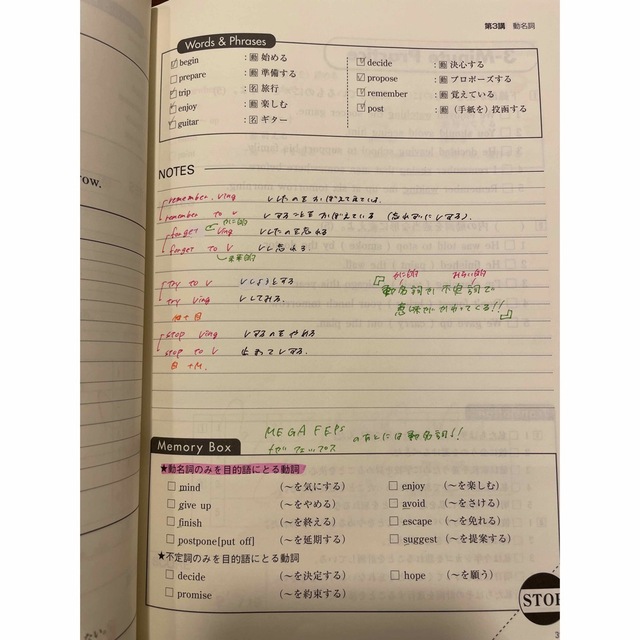 第3講 動名詞
Words & Phrases
begin :動 始める
prepare :動 準備する
trip :名 旅行
enjoy :動 楽しむ
guitar :名 ギター
decide :動 決心する
propose :動 プロポーズする
remember :動 覚えている
post :動 (手紙を)投函する
row.
NOTES
remember Ving
remember to V Vすることをおぼえている (忘れずにVする)
forget Ving Vしたのを忘れる
forget to V Vし忘れる
未来的
try to V Vしようとする
try Ving Vしてみる
動名詞と不定詞で
意味がかわってくる!!
stop Ving Vするのをやめる
stop to V 止まってVする
MEGA FEPs のあとには動名詞!!
メガフェップス
Memory Box
★動名詞のみを目的語にとる動詞
mind (〜を気にする)
give up (〜をやめる)
finish (〜を終える)
postpone[put off] (〜を延期する)
enjoy (〜を楽しむ)
avoid (〜をさける)
escape (〜を免れる)
suggest (〜を提案する)
★不定詞のみを目的語にとる動詞
decide (〜を決定する)
promise (〜を約束する)
hope (〜を願う)
STOP